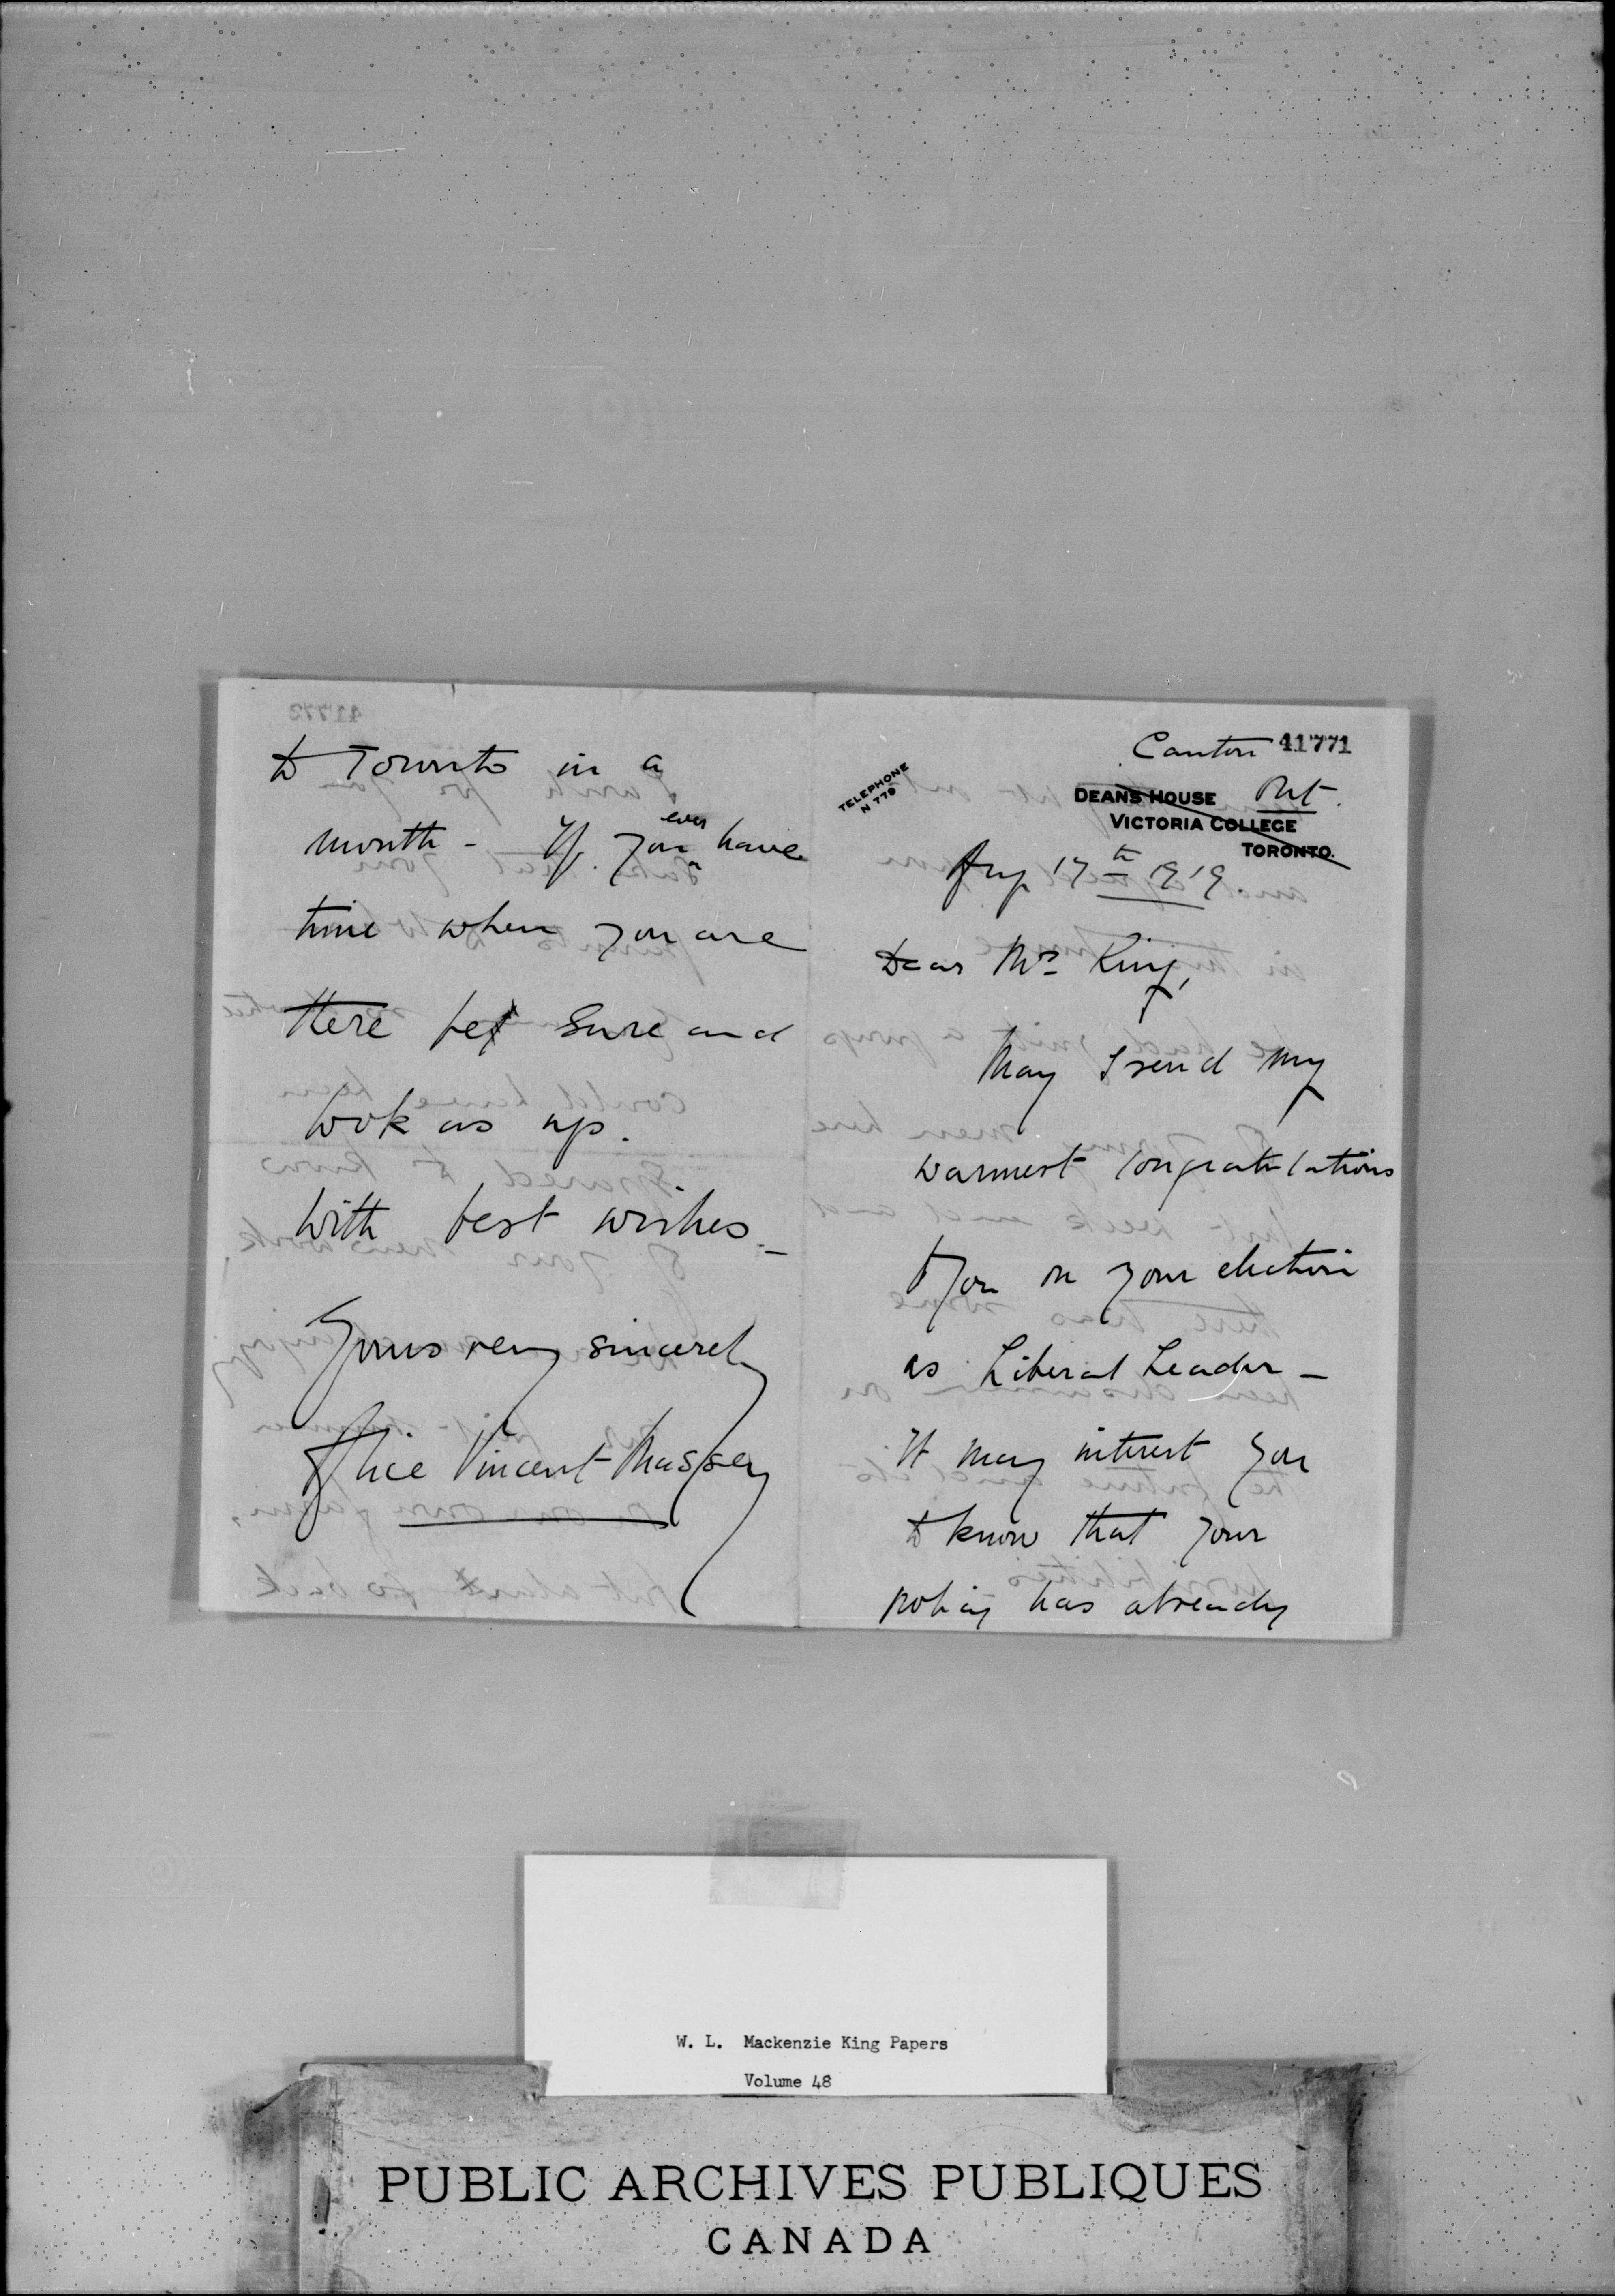 Canton 41771
Ont.
TELEPHONE
N 779
DEAN'S HOUSE
VICTORIA COLLEGE
TORONTO.
Aug 17th 1919.
Dear Mr. King,
May I send my
warmest congratulations
to you on your election
as Liberal Leader –
It may interest you
to know that your
policy has already
41772
to Toronto in a
month – If you ever have
time when you are
there be sure and
look us up.
With best wishes –
Yours very sincerely
Alice Vincent Massey
W. L. Mackenzie King Papers
Volume 48
PUBLIC ARCHIVES PUBLIQUES
CANADA